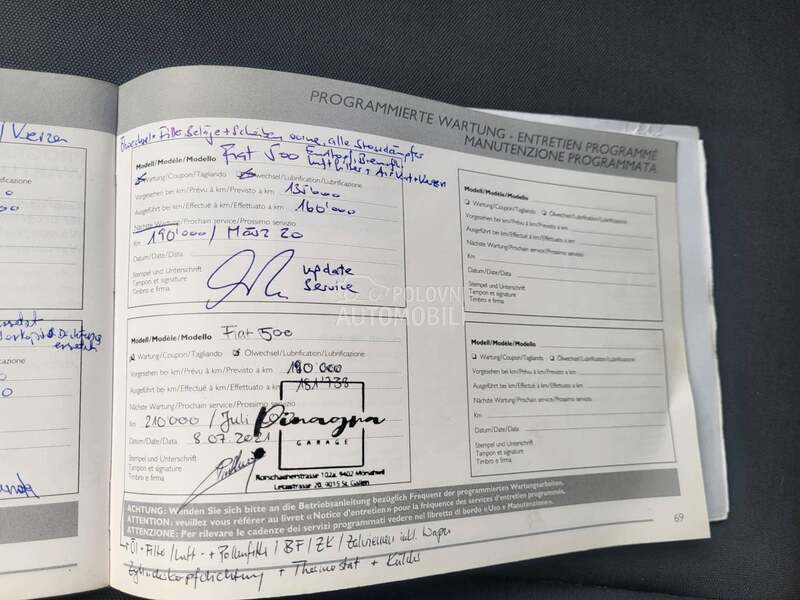 / Kerzen
PROGRAMMIERTE WARTUNG - ENTRETIEN PROGRAMMÉ
MANUTENZIONE PROGRAMMATA
Ölwechsel + Filter, Beläge + Scheiben vorne, alle Stossdämpfer
Modell/Modèle/Modello Fiat 500
Luftfilter + Kerzen
Wartung/Coupon/Tagliando Ölwechsel/Lubrification/Lubrificazione
Vorgesehen bei km/Prévu à km/Previsto a km 135'000
Ausgeführt bei km/Effectué à km/Effettuato a km 160'000
Nächste Wartung/Prochain service/Prossimo servizio
Km 190'000 / März 20
Datum/Date/Data
Stempel und Unterschrift
Tampon et signature
Timbro e firma
update
Service
Modell/Modèle/Modello Fiat 500
Wartung/Coupon/Tagliando Ölwechsel/Lubrification/Lubrificazione
Vorgesehen bei km/Prévu à km/Previsto a km 180 000
Ausgeführt bei km/Effectué à km/Effettuato a km 181'738
Nächste Wartung/Prochain service/Prossimo servizio
Km 210'000 / Juli
Datum/Date/Data 8.07.2021
Stempel und Unterschrift
Tampon et signature
Timbro e firma
GARAGE
Rorschacherstrasse 102a, 9402 Mörschwil
9015 St. Gallen
Modell/Modèle/Modello
Wartung/Coupon/Tagliando Ölwechsel/Lubrification/Lubrificazione
Vorgesehen bei km/Prévu à km/Previsto a km
Ausgeführt bei km/Effectué à km/Effettuato a km
Nächste Wartung/Prochain service/Prossimo servizio
Km
Datum/Date/Data
Stempel und Unterschrift
Tampon et signature
Timbro e firma
Modell/Modèle/Modello
Wartung/Coupon/Tagliando Ölwechsel/Lubrification/Lubrificazione
Vorgesehen bei km/Prévu à km/Previsto a km
Ausgeführt bei km/Effectué à km/Effettuato a km
Nächste Wartung/Prochain service/Prossimo servizio
Km
Datum/Date/Data
Stempel und Unterschrift
Tampon et signature
Timbro e firma
POLOVNI
AUTOMOBILI
ACHTUNG: Wenden Sie sich bitte an die Betriebsanleitung bezüglich Frequenz der programmierten Wartungsarbeiten.
ATTENTION: veuillez vous référer au livret «Notice d'entretien» pour la fréquence des services d'entretien programmés.
ATTENZIONE: Per rilevare le cadenze dei servizi programmati vedere nel libretto di bordo «Uso e Manutenzione».
69
Öl + Filter / Luft- + Pollenfilter / BF / ZK / Zahnriemen inkl. Wapu
Zylinderkopfdichtung + Thermostat + Kühler